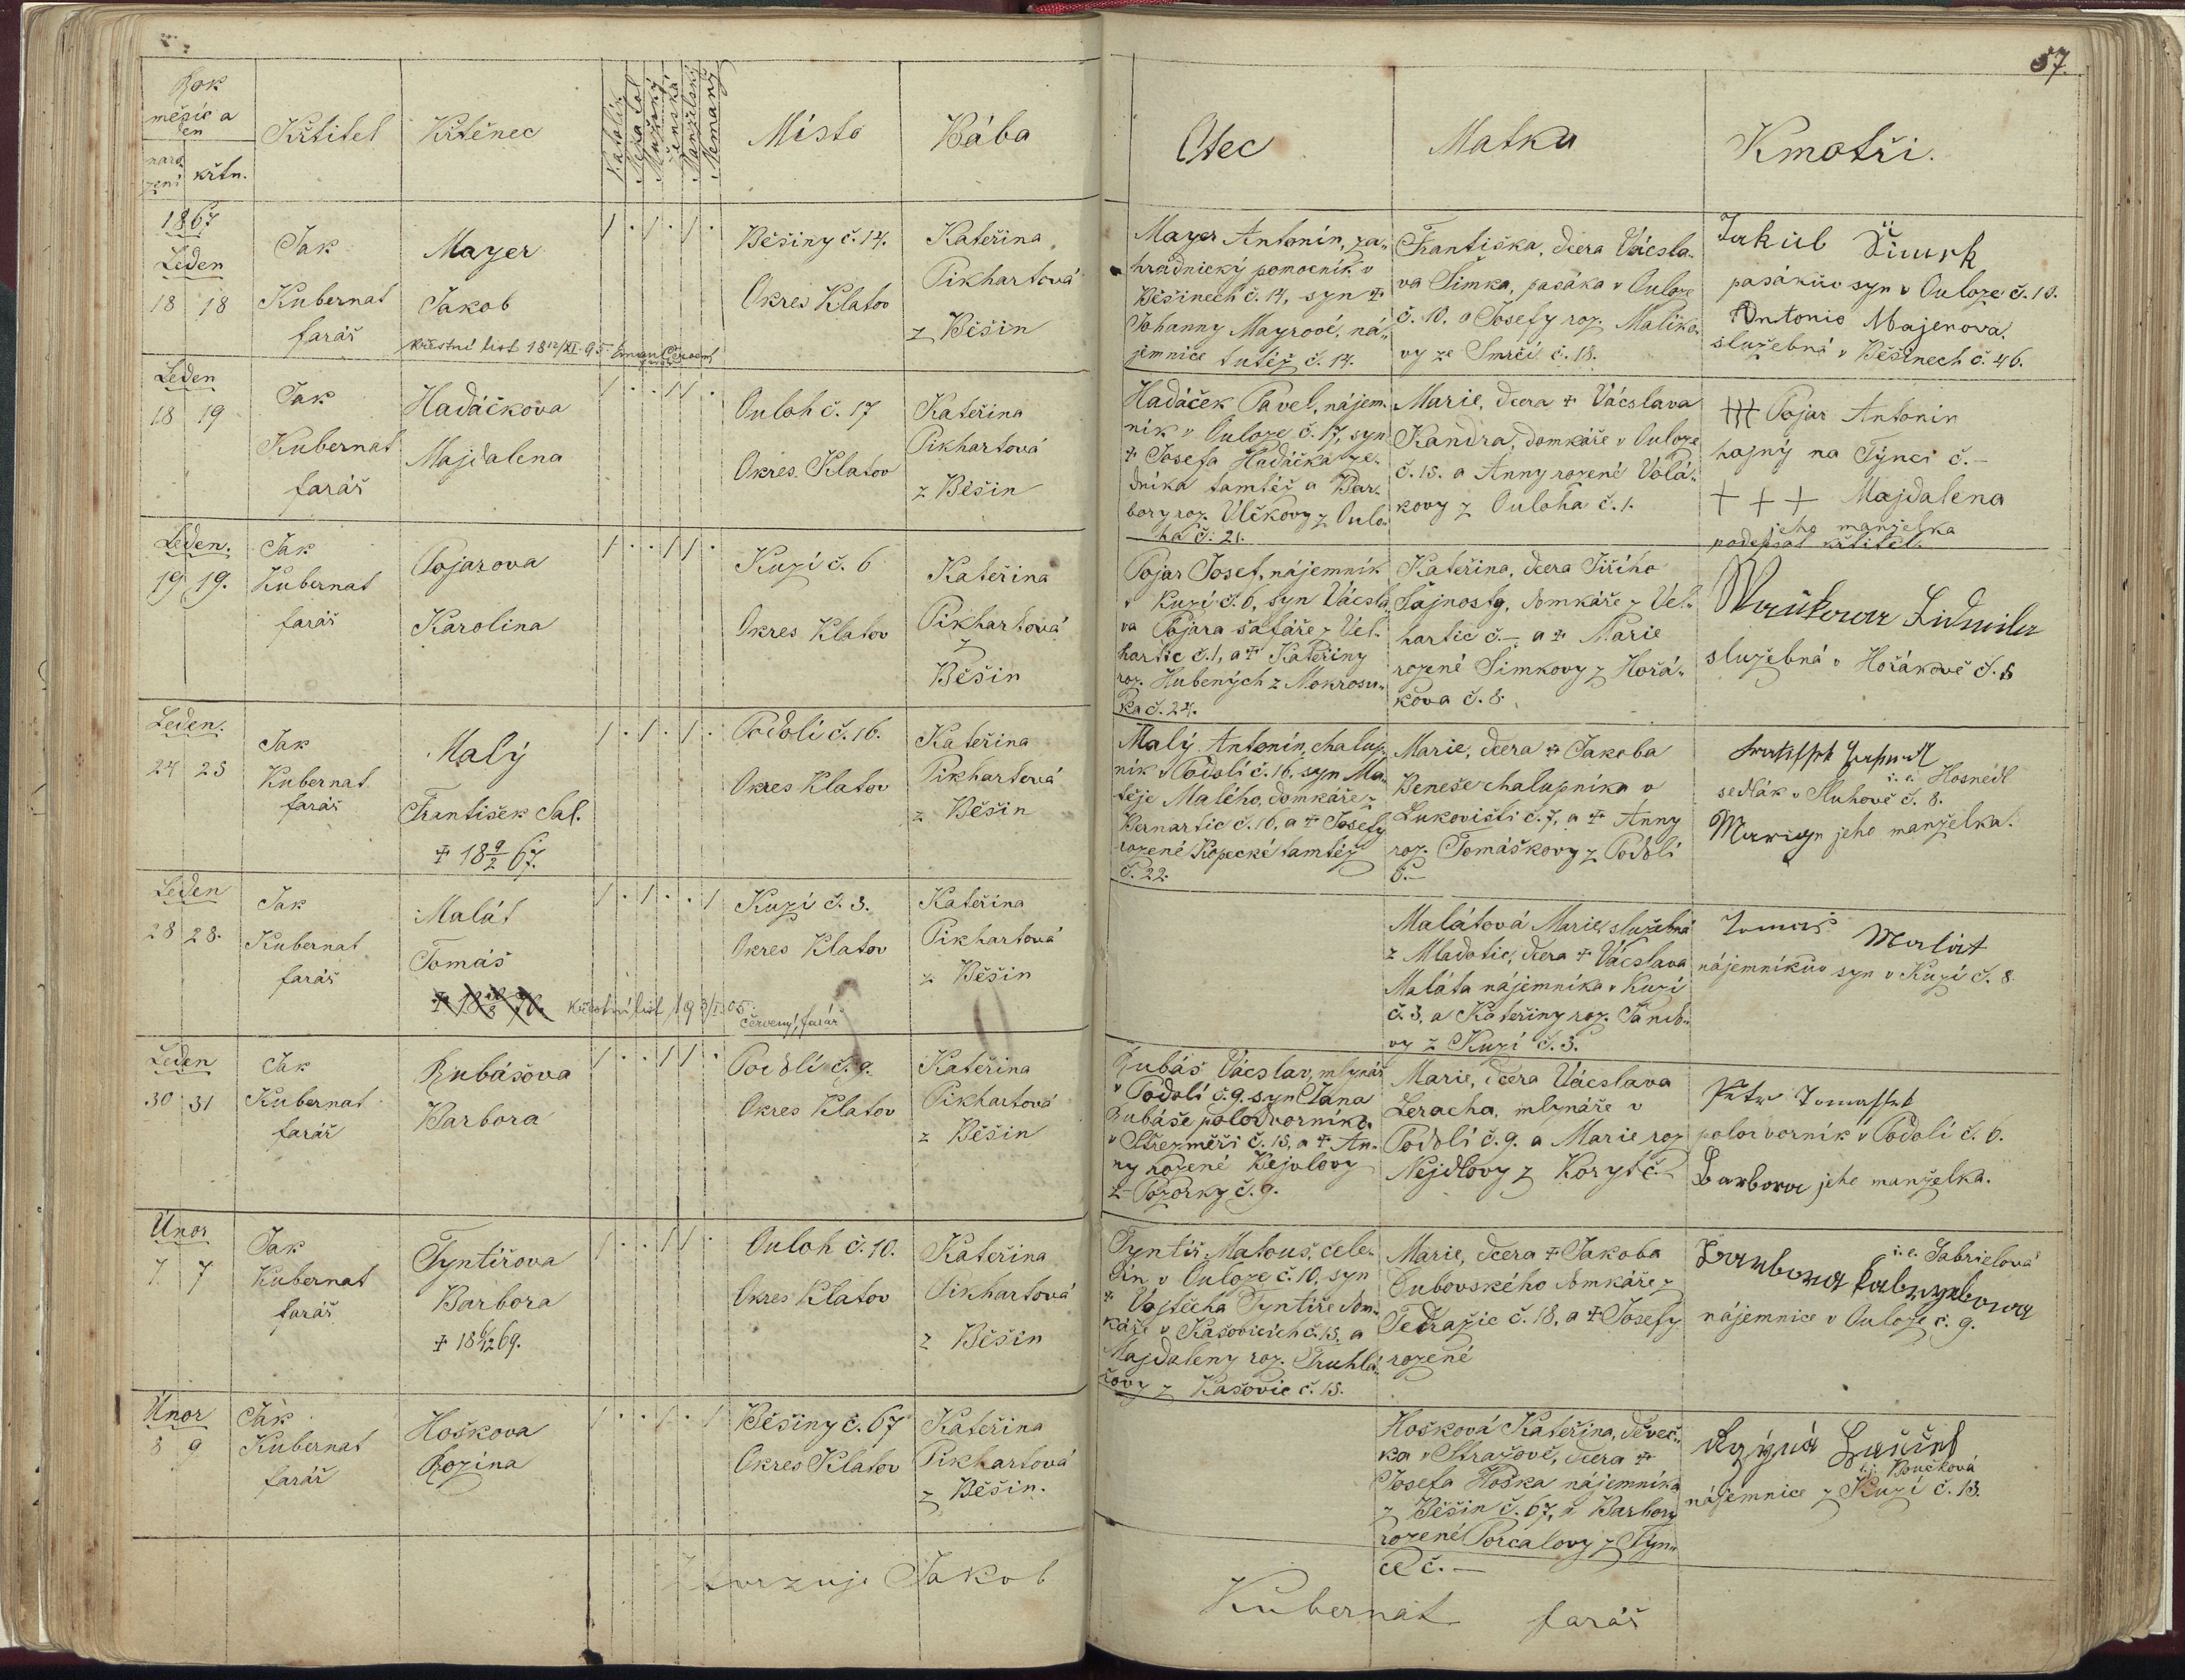 57.
Rok
měsíc a
den
naro
zení
křtn.
Křtitel
Křtěnec
Katolík
Nekatol
Mužský
Ženská
Manželské
Nemanž
Místo
Bába
Otec
Matka
Kmotři.
1867
Leden
18 18
Jak
Kubernat
farář
Mayer
Jakob
křestní list 18 12/XI 95
Běšiny č. 14.
Okres Klatov
Kateřina
Pikhartová
z Běšin
Mayer Antonín, za„
hradnický pomocník v
Běšinech č. 14, syn ✝
Johanny Mayrové, ná„
jemnice tutéž č. 14.
Františka, dcera Vácsla„
va Šimka, pasáka v Ouloze
č. 10. a Josefy roz. Malíko„
vy ze Smrčí č. 18.
Jakub Šimek
pasákův syn v Ouloze č. 10.
Antonie Majerova
služebná v Běšinech č. 46.
Leden
18 19
Jak
Kubernat
farář
Hadáčkova
Majdalena
Ouloh č. 17
Okres Klatov
Kateřina
Pikhartová
z Běšin
Hadáček Pavel, nájem„
ník v Ouloze č. 17, syn
✝ Josefa Hadáčka ze„
dníka tamtéž a Bar„
bory roz. Vlčkovy z Oulo„
ha č. 21.
Marie, dcera ✝ Vácslava
Kandra, domkáře v Ouloze
č. 15. a Anny rozené Volá„
kovy z Ouloha č. 1.
✝✝✝ Pojar Antonín
hajný na Týnci č. –
✝ ✝ ✝ Majdalena
jeho manželka
podepsal křtitel.
Leden.
19 19.
Jak
Kubernat
farář
Pojarova
Karolina
Kuzí č. 6
Okres Klatov
Kateřina
Pikhartová
z
Běšin
Pojar Josef, nájemník
v Kuzí č. 6, syn Vácsla„
va Pojara šafáře z Vel„
hartic č. 1, a ✝ Kateřiny
roz. Hubených z Mokrosu„
ka č. 24.
Kateřina, dcera Jiřího
Šajnosty, domkáře z Vel„
hartic č. – a ✝ Marie
rozené Šimkovy z Hořá„
kova č. 8.
Ludmila
služebná v Hořákově č. 6
Leden.
24 25
Jak
Kubernat
farář
Malý
František Sal.
✝ 18 9/2 67.
Podolí č. 16.
Okres Klatov
Kateřina
Pikhartová
z Běšin
Malý Antonín, chalup„
ník v Podolí č. 16, syn Ma„
těje Malého, domkáře z
Bernartic č. 16, a ✝ Josefy
rozené Kopecké tamtéž
č. 22.
Marie, dcera ✝ Jakoba
Beneše chalupníka v
Lukovišti č. 7, a ✝ Anny
roz. Tomáškovy z Podolí
č. –
i. e. Hosnédl
sedlák v Sluhově č. 8.
Marie jeho manželka.
Leden
28 28.
Jak
Kubernat
farář
Malát
Tomáš
křestní list 19 3/I 05.
Červený, farář
Kuzí č. 3.
Okres Klatov
Kateřina
Pikhartová
z Běšin
Malátová Marie, služebná
z Mladotic, dcera ✝ Vácslava
Maláta nájemníka v Kuzí
č. 3, a Kateřiny roz.
vy z Kuzí č. 3.
Tomáš Malát
nájemníkův syn v Kuzí č. 8.
Leden
30 31
Jak
Kubernat
farář
Rubášova
Barbora
Podolí č. 9.
Okres Klatov
Kateřina
Pikhartová
z Běšin
Rubáš Vácslav, mlynář
v Podolí č. 9. syn Jana
Rubáše polodvorníka
v Střezměři č. 15, a ✝ An„
ny rozené Bejvlovy
z Pozorky č. 9.
Marie, dcera Vácslava
Leracha, mlynáře v
Podolí č. 9. a Marie roz.
Nejdlovy z Koryt č.
Petr Tomásek
polodvorník v Podolí č. 6.
Barbora jeho manželka.
Únor
7 7
Jak
Kubernat
farář
Tyntířova
Barbora
✝ 18 6/12 69.
Ouloh č. 10.
Okres Klatov
Kateřina
Pikhartová
z Běšin
Tyntíř Matouš, čele„
dín v Ouloze č. 10, syn
✝ Vojtěcha Tyntíře dom„
káře v Kašovicích č. 15. a
Majdaleny roz. Truhlá„
řovy z Kašovic č. 15.
Marie, dcera ✝ Jakoba
Dubovského domkáře z
Tedražic č. 18, a ✝ Josefy
rozené
i. e. Gabrielová
Barbora
nájemnice v Ouloze č. 9.
Únor
8 9
Jak
Kubernat
farář
Hoškova
Rozina
Běšiny č. 67
Okres Klatov
Kateřina
Pikhartová
z Běšin.
Hošková Kateřina, děveč„
ka v Strážově, dcera ✝
Josefa Hoška nájemníka
z Běšin č. 67, a Barbory
rozené Porcalovy z Týn„
ce č. –
t. j. Boučková
nájemnice z Kuzí č. 13.
Stvrzuje Jakob
Kubernat farář